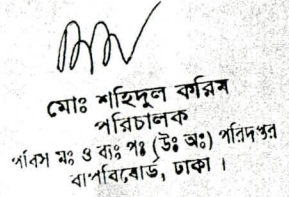 মোঃ শাহিদুল করিম
পরিচালক
পবিস মঃ ও ব্যঃ পঃ (উঃ অঃ) পরিদপ্তর
বাপবিবোর্ড, ঢাকা ।